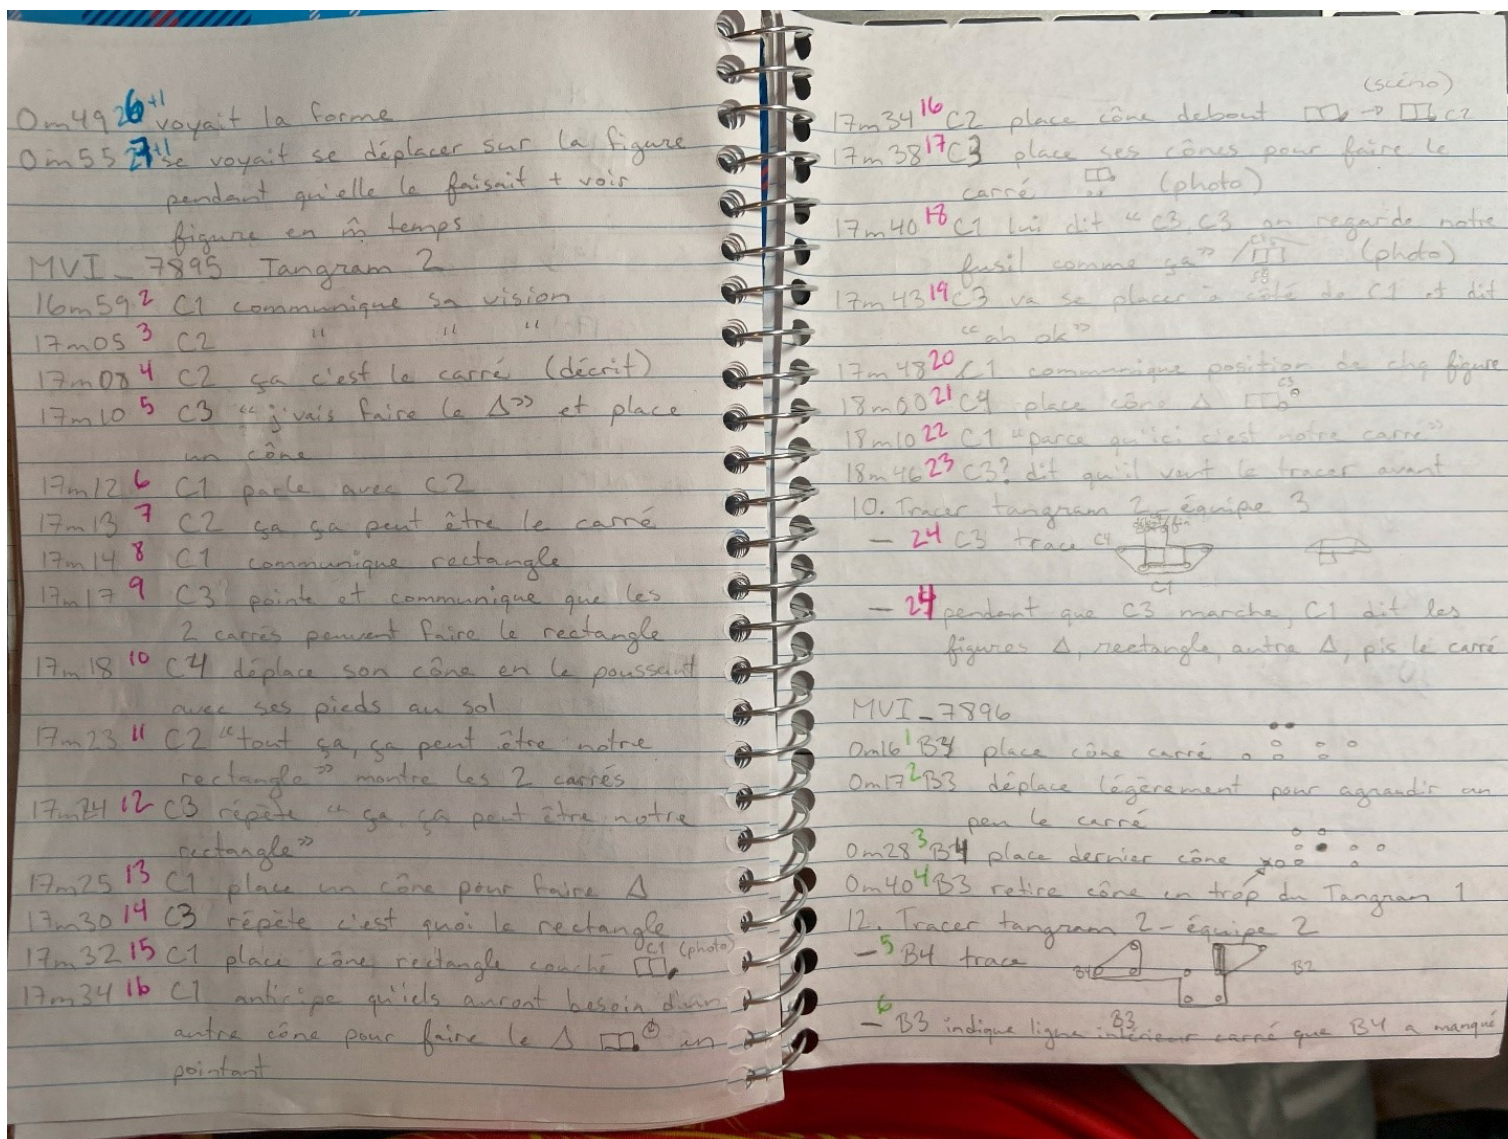 0m49 26+1 voyait la forme
0m55 27+1 se voyait se déplacer sur la figure
pendant qu'elle le faisait + voir
figure en m̂ temps
MVI_7895 Tangram 2
16m59 2 C1 communique sa vision
17m05 3 C2 " " "
17m08 4 C2 ça c'est le carré (décrit)
17m10 5 C3 "j'vais faire le Δ" et place
un cône
17m12 6 C1 parle avec C2
17m13 7 C2 ça ça peut être le carré
17m14 8 C1 communique rectangle
17m17 9 C3 pointe et communique que les
2 carrés peuvent faire le rectangle
17m18 10 C4 déplace son cône en le poussant
avec ses pieds au sol
17m23 11 C2 "tout ça, ça peut être notre
rectangle" montre les 2 carrés
17m24 12 C3 répète "ça, ça peut être notre
rectangle"
17m25 13 C1 place un cône pour faire Δ
17m30 14 C3 répète c'est quoi le rectangle
17m32 15 C1 place cône rectangle couché C1 (photo)
17m34 16 C1 anticipe qu'iels auront besoin d'un
autre cône pour faire le Δ en
pointant
(scéno)
17m34 16 C2 place cône debout → C2
17m38 17 C3 place ses cônes pour faire le
carré (photo)
17m40 18 C1 lui dit "C3, C3 on regarde notre
fusil comme ça" (photo)
17m43 19 C3 va se placer à côté de C1 et dit
"ah ok"
17m48 20 C1 communique position de chq figure
18m00 21 C4 place cône Δ C3
18m10 22 C1 "parce qu'ici c'est notre carré"
18m46 23 C3? dit qu'il veut le tracer avant
10. Tracer tangram 2 - équipe 3
- 24 C3 trace C4
C1
- 24 pendant que C3 marche, C1 dit les
figures Δ, rectangle, autre Δ, pis le carré
MVI_7896
0m16 1 B4 place cône carré
0m17 2 B3 déplace légèrement pour agrandir un
peu le carré
0m28 3 B4 place dernier cône
0m40 4 B3 retire cône en trop du Tangram 1
12. Tracer tangram 2 - équipe 2
- 5 B4 trace B2
B3
- 6 B3 indique ligne intérieur carré que B4 a manqué